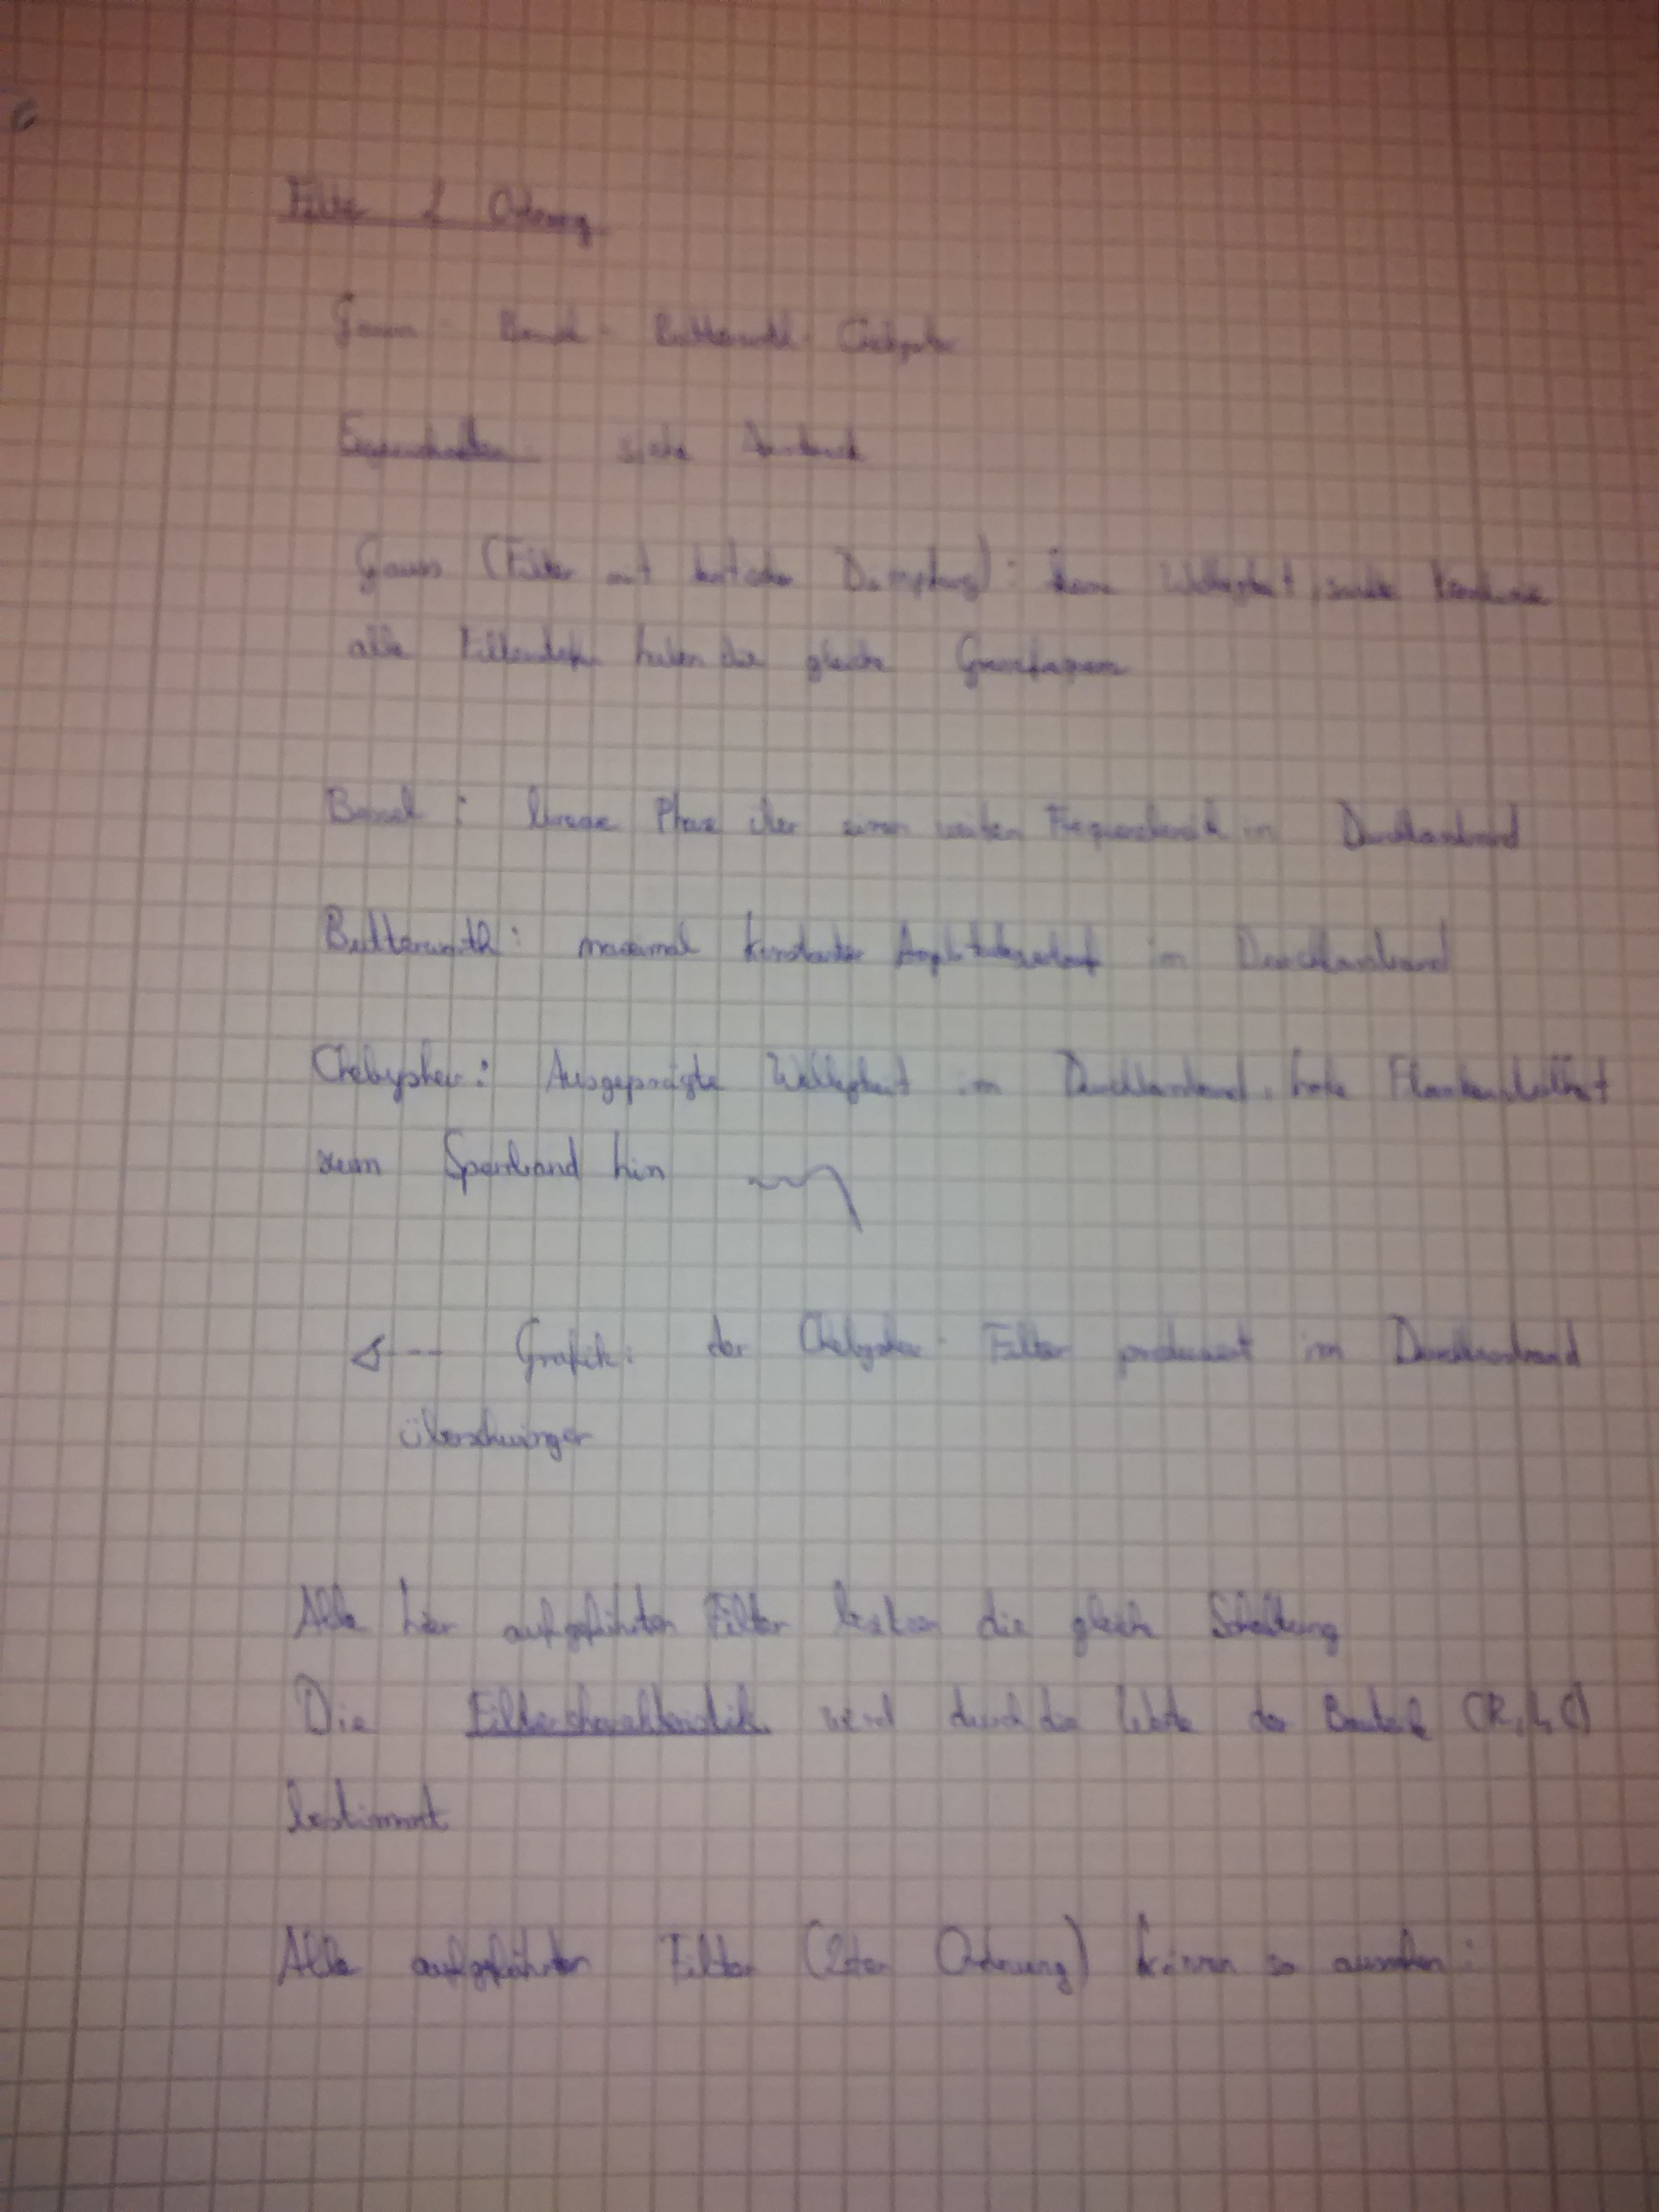 Filter 2 Ordnung
Gauss - Bessel - Butterworth - Chebyshev
Eigenschaften: siehe
Gauss (Filter mit kritischer Dämpfung): keine Welligkeit,
alle Filterstufen haben die gleiche Grenzfrequenz
Bessel: lineare Phase über einen weiten Frequenzbereich im Durchlassband
Butterworth: maximal konstanter Amplitudenverlauf im Durchlassband
Chebyshev: Ausgeprägte Welligkeit im Durchlassband, hohe Flankensteilheit
zum Sperrband hin
Grafik: der Chebyshev-Filter produziert im Durchlassband
überschwinger
Alle hier aufgeführten Filter besitzen die gleiche Schaltung
Die Filtercharakteristik wird durch die Werte der Bauteile (R, L, C)
bestimmt
Alle aufgeführten Filter (2ter Ordnung) können so aussehen: